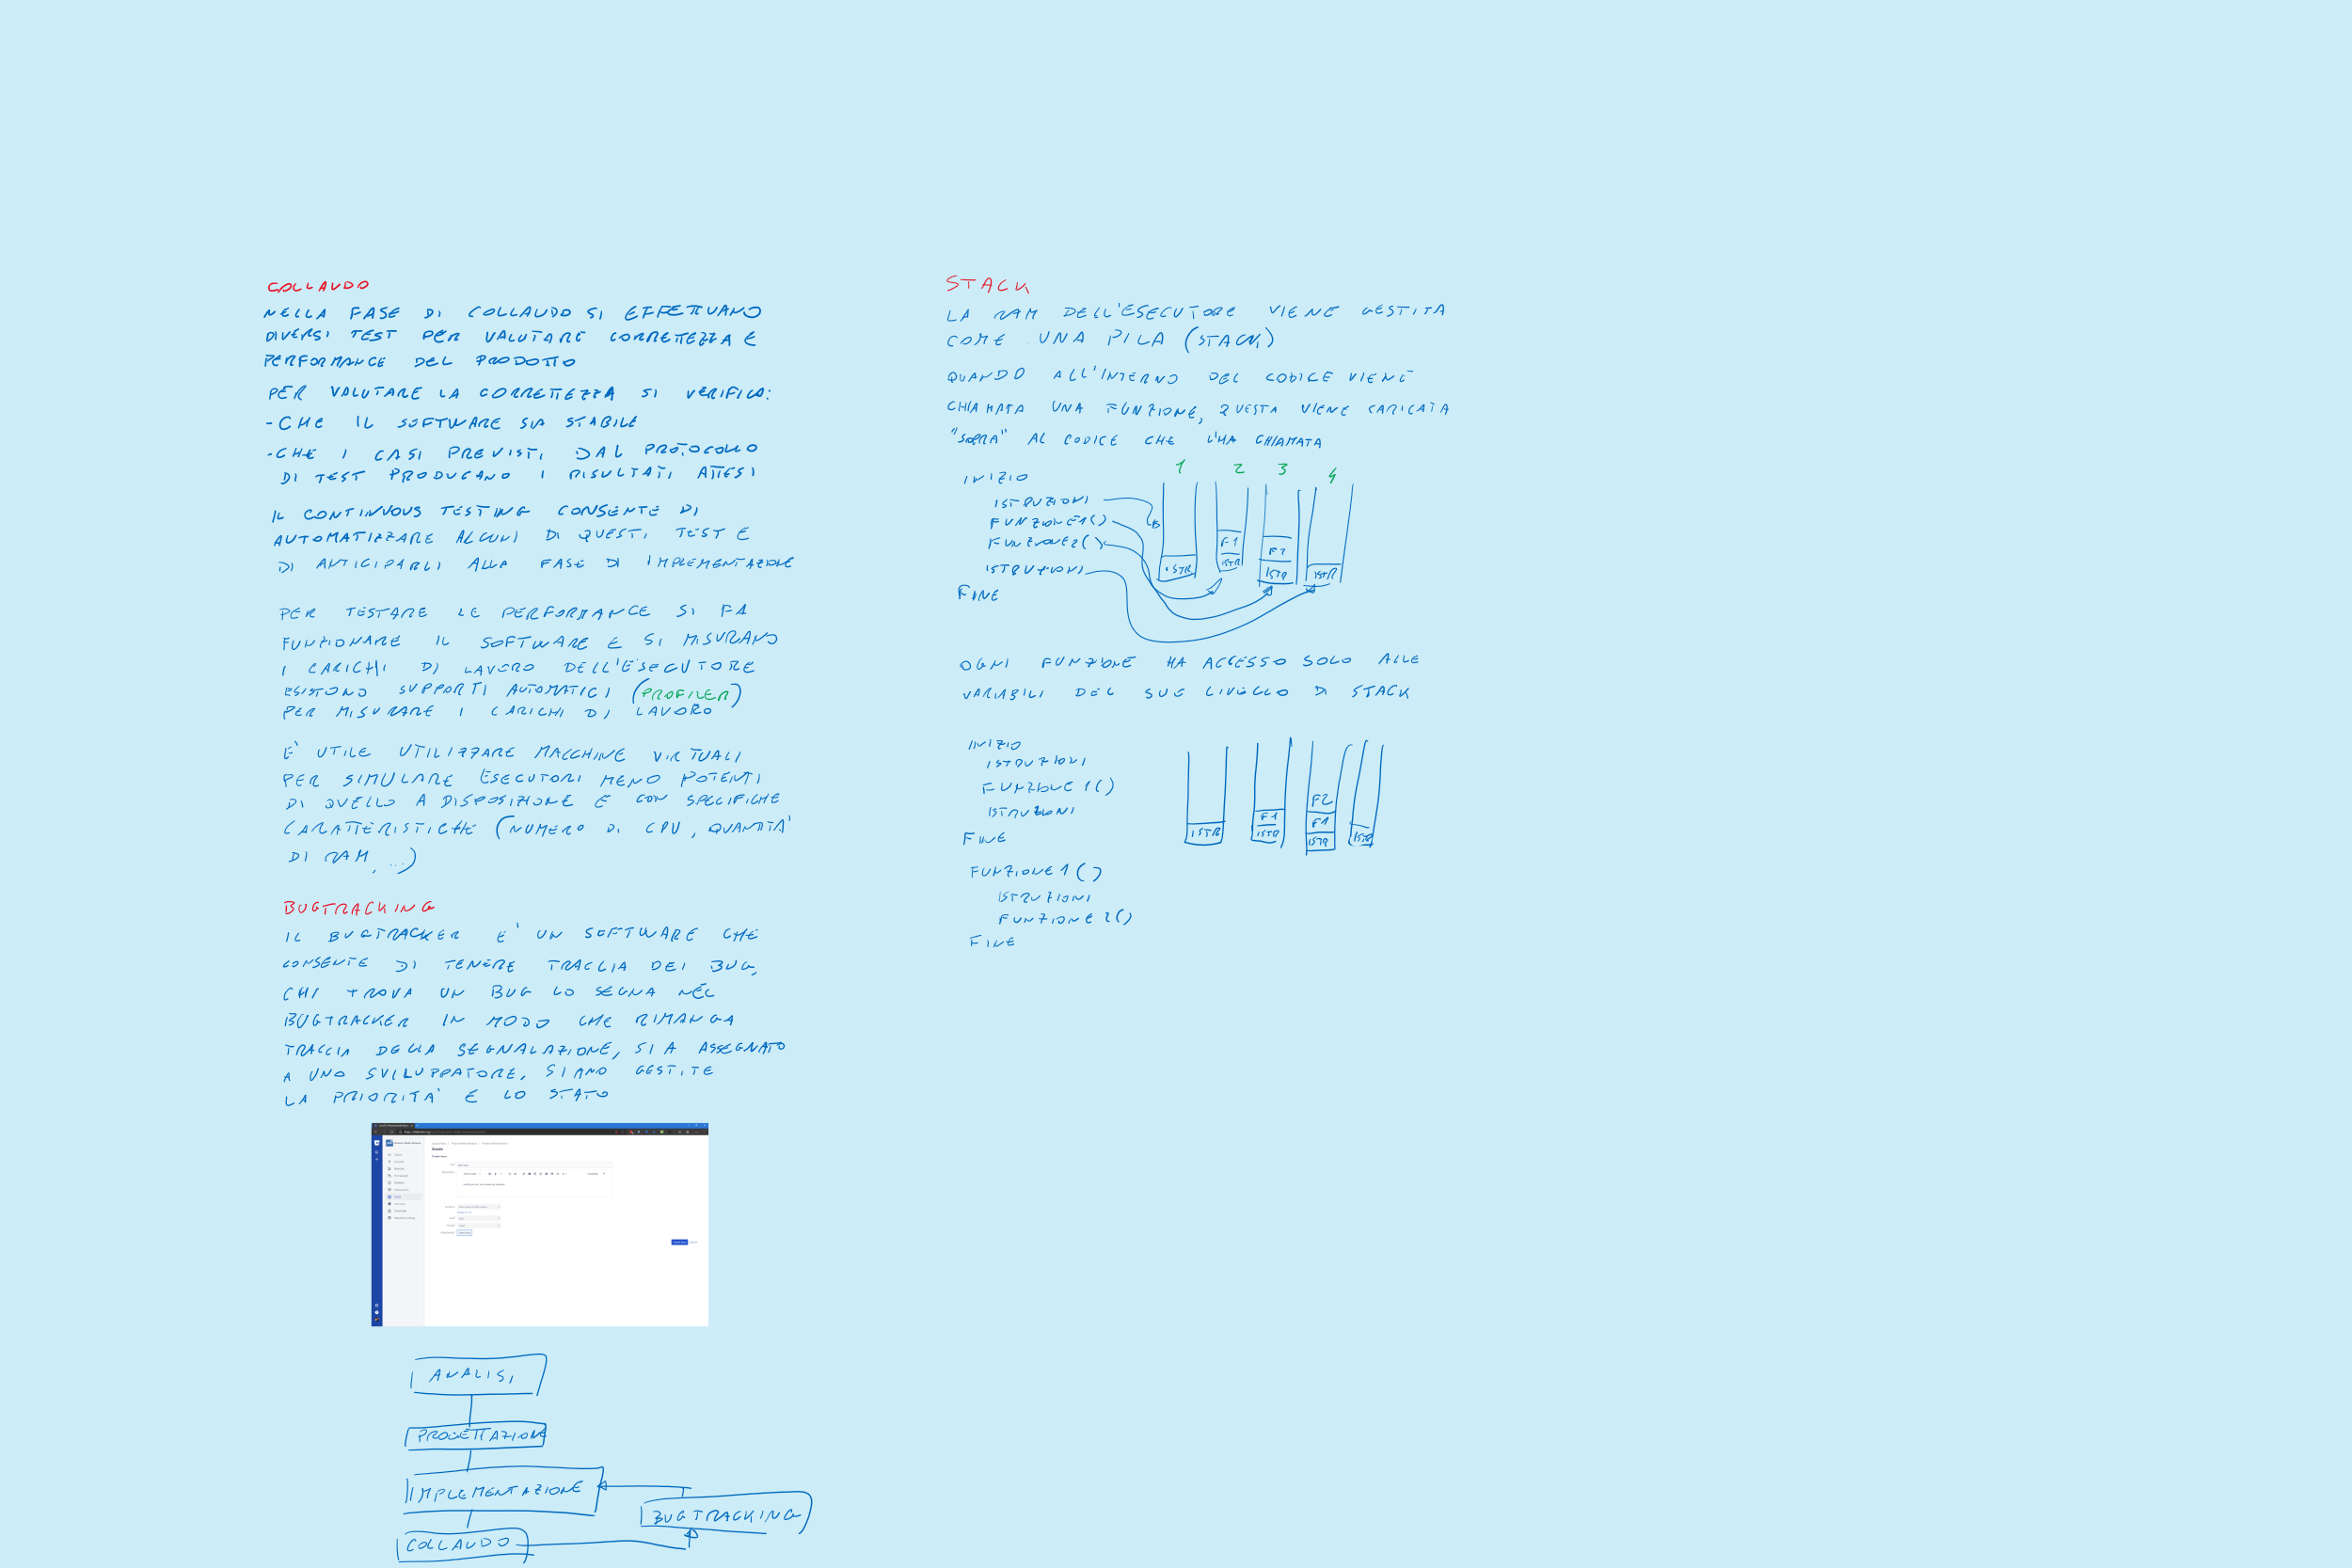 COLLAUDO
NELLA FASE DI COLLAUDO SI EFFETTUANO
DIVERSI TEST PER VALUTARE CORRETTEZZA E
PERFORMANCE DEL PRODOTTO
PER VALUTARE LA CORRETTEZZA SI VERIFICA:
- CHE IL SOFTWARE SIA STABILE
- CHE I CASI PREVISTI DAL PROTOCOLLO
DI TEST PRODUCANO I RISULTATI ATTESI
IL CONTINUOUS TESTING CONSENTE DI
AUTOMATIZZARE ALCUNI DI QUESTI TEST E
DI ANTICIPARLI ALLA FASE DI IMPLEMENTAZIONE
PER TESTARE LE PERFORMANCE SI FA
FUNZIONARE IL SOFTWARE E SI MISURANO
I CARICHI DI LAVORO DELL'ESECUTORE
ESISTONO SUPPORTI AUTOMATICI (PROFILER)
PER MISURARE I CARICHI DI LAVORO
E' UTILE UTILIZZARE MACCHINE VIRTUALI
PER SIMULARE ESECUTORI MENO POTENTI
DI QUELLO A DISPOSIZIONE E CON SPECIFICHE
CARATTERISTICHE (NUMERO DI CPU, QUANTITA'
DI RAM, ...)
BUGTRACKING
IL BUGTRACKER E' UN SOFTWARE CHE
CONSENTE DI TENERE TRACCIA DEI BUG,
CHI TROVA UN BUG LO SEGNA NEL
BUGTRACKER IN MODO CHE RIMANGA
TRACCIA DELLA SEGNALAZIONE, SIA ASSEGNATO
A UNO SVILUPPATORE, SIANO GESTITE
LA PRIORITA' E LO STATO
ANALISI
PROGETTAZIONE
IMPLEMENTAZIONE
BUGTRACKING
COLLAUDO
STACK
LA RAM DELL'ESECUTORE VIENE GESTITA
COME UNA PILA (STACK)
QUANDO ALL'INTERNO DEL CODICE VIENE
CHIAMATA UNA FUNZIONE, QUESTA VIENE CARICATA
"SOPRA" AL CODICE CHE L'HA CHIAMATA
1 2 3 4
INIZIO
ISTRUZIONI
FUNZIONE1()
FUNZIONE2()
ISTRUZIONI
FINE
F1 F2
ISTR ISTR ISTR ISTR
OGNI FUNZIONE HA ACCESSO SOLO ALLE
VARIABILI DEL SUO LIVELLO DI STACK
INIZIO
ISTRUZIONI
FUNZIONE 1()
ISTRUZIONI
FINE
F2
F1 F1
ISTR ISTR ISTR ISTR
FUNZIONE 1()
ISTRUZIONI
FUNZIONE 2()
FINE